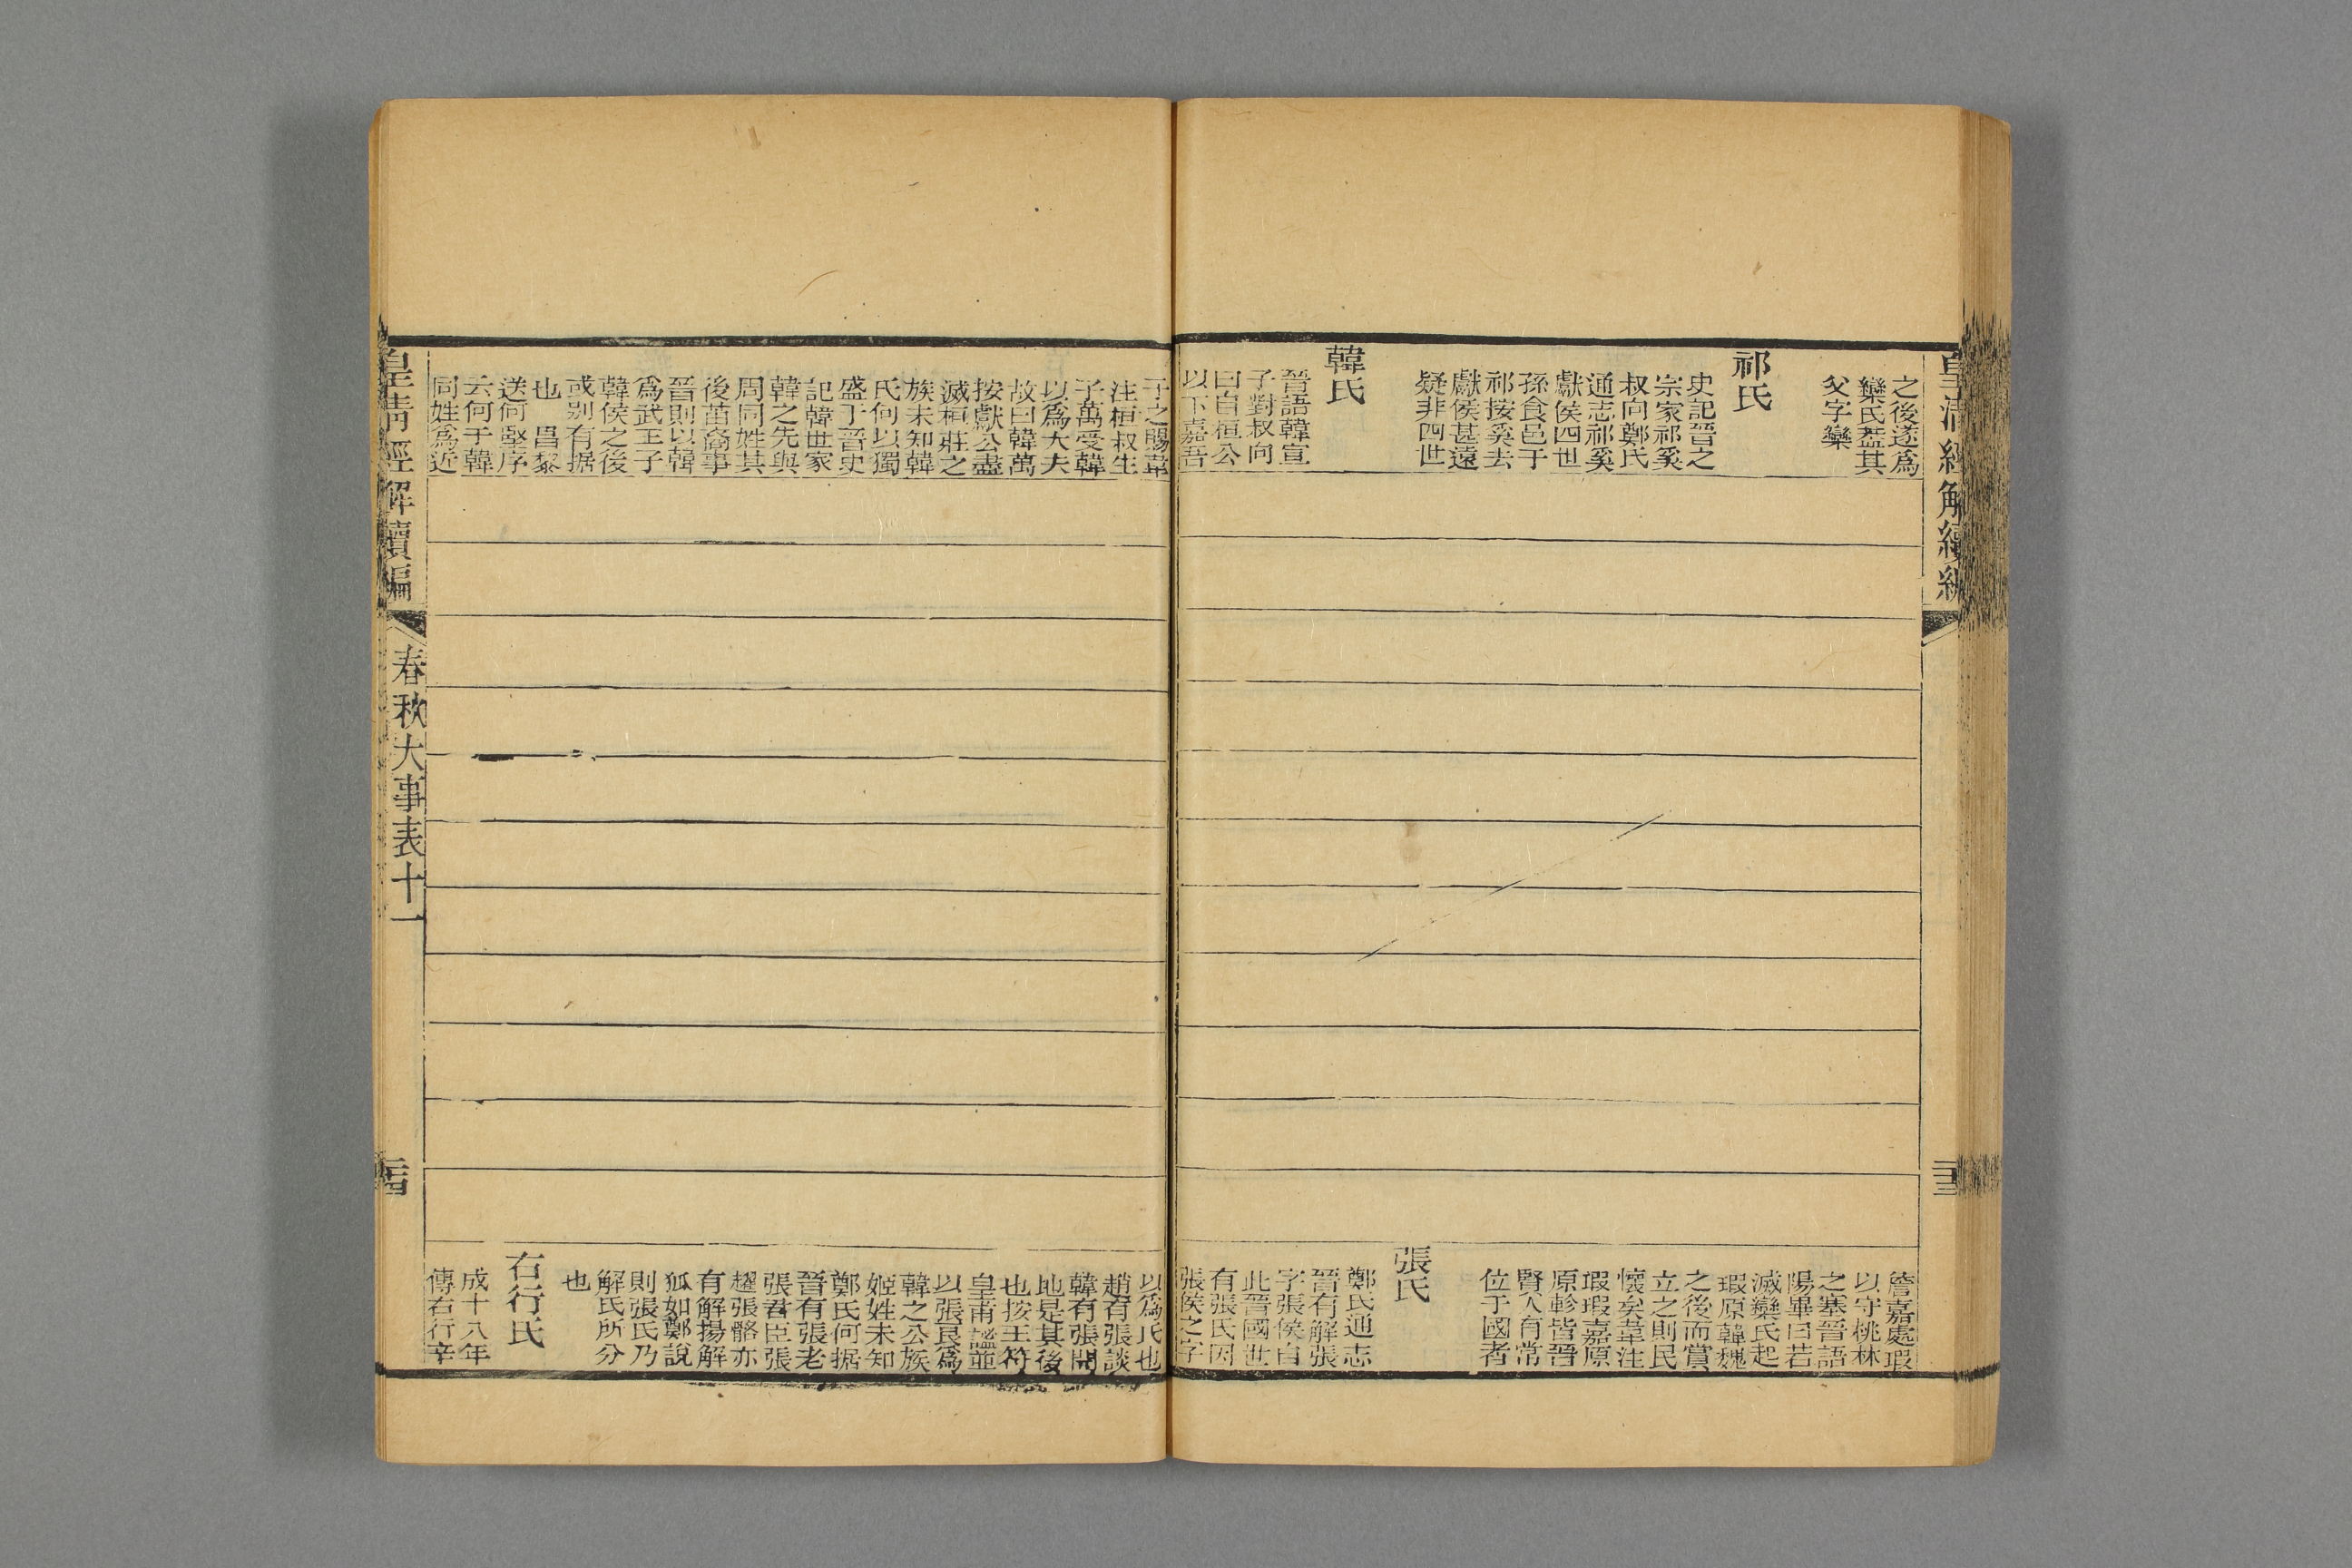 之後遂爲
欒氏葢其
父字欒
祁氏
史記晉之
宗家祁奚
叔向鄭氏
通志祁奚
獻侯四世
孫食邑于
祁按奚去
獻侯甚遠
疑非四世
韓氏
晉語韓宣
子對叔向
曰自桓公
以下嘉吾
詹嘉處瑕
以守桃林
之塞晉語
陽畢曰若
滅欒氏起
瑕原韓魏
之後而賞
立之則民
懷矣韋注
瑕瑕嘉原
原軫皆晉
賢人有常
位于國者
張氏
鄭氏通志
晉有解張
字張侯自
此晉國世
有張氏因
張侯之字
子之賜韋
注桓叔生
子萬受韓
以爲大夫
故曰韓萬
按獻公盡
滅桓莊之
族未知韓
氏何以獨
盛于晉史
記韓世家
韓之先與
周同姓其
後苗裔事
晉則以韓
爲武王子
韓侯之後
或别有据
也 昌黎
送何堅序
云何于韓
同姓爲近
以爲氏也
趙有張談
韓有張開
地是其後
也按王符
皇甫謐並
以張良爲
韓之公族
姬姓未知
鄭氏何据
晉有張老
張君臣張
趯張骼亦
有解揚解
狐如鄭說
則張氏乃
解氏所分
也
右行氏
成十八年
傳右行辛
皇清經解續編
春秋大事表十一